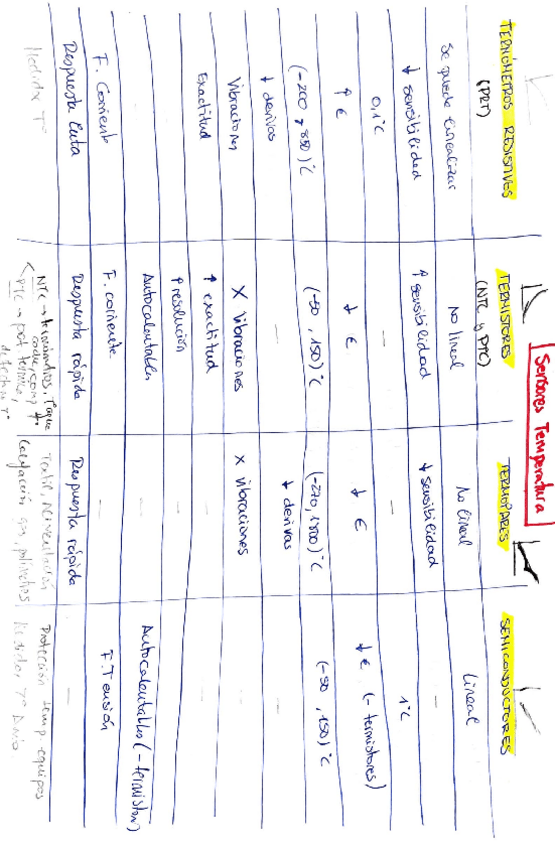 Sensores Temperatura
TERMÓMETROS RESISTIVOS
(PRT)
TERMISTORES
(NTC y PTC)
TERMOPARES
SEMICONDUCTORES
Se puede linealizar
No lineal
No lineal
Lineal
↓ sensibilidad
↑ sensibilidad
↓ sensibilidad
—
0,1°C
—
—
1°C
↑ €
↓ €
↓ €
↓ € (- termistores)
(-200 y 850)°C
(-50, 150)°C
(-270, 1800)°C
(-50, 150)°C
↓ derivas
—
↓ derivas
—
Vibraciones
X Vibraciones
X Vibraciones
—
Exactitud
↑ exactitud
—
—
↑ resolución
—
—
Autocalentables
—
Autocalentables (- termistor)
F. Corriente
F. corriente
—
F. Tensión
Respuesta lenta
Respuesta rápida
Respuesta rápida
—
Medida T°
NTC → termómetros, T° que
PTC → pot termico,
detectar T°
Calefacción gas, polímetros
Protección temp. equipos
Medidor T°